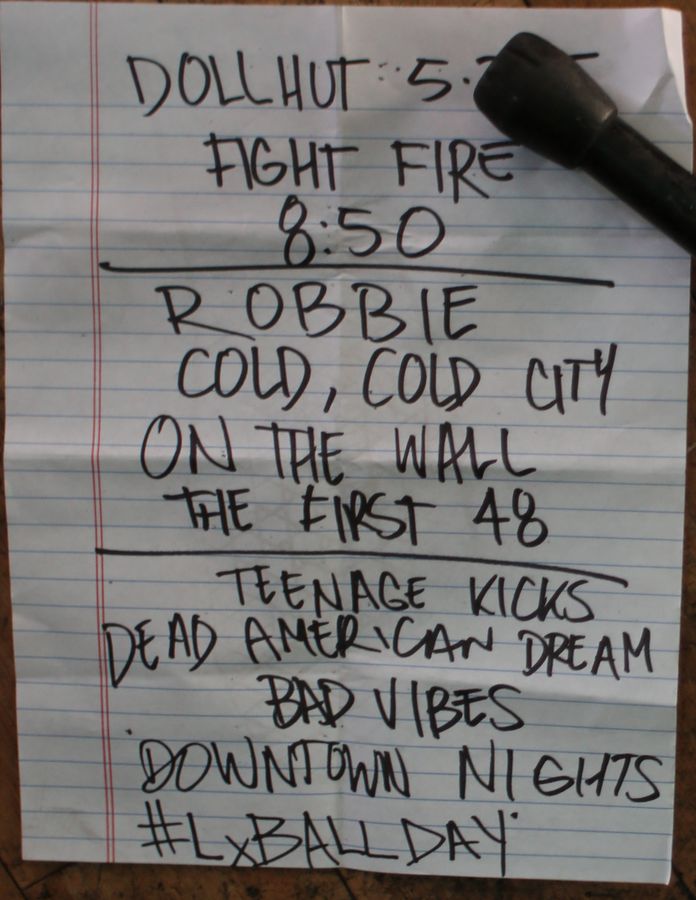 DOLLHUT 5.
FIGHT FIRE
8:50
ROBBIE
COLD, COLD CITY
ON THE WALL
THE FIRST 48
TEENAGE KICKS
DEAD AMERICAN DREAM
BAD VIBES
DOWNTOWN NIGHTS
#LXBALLDAY